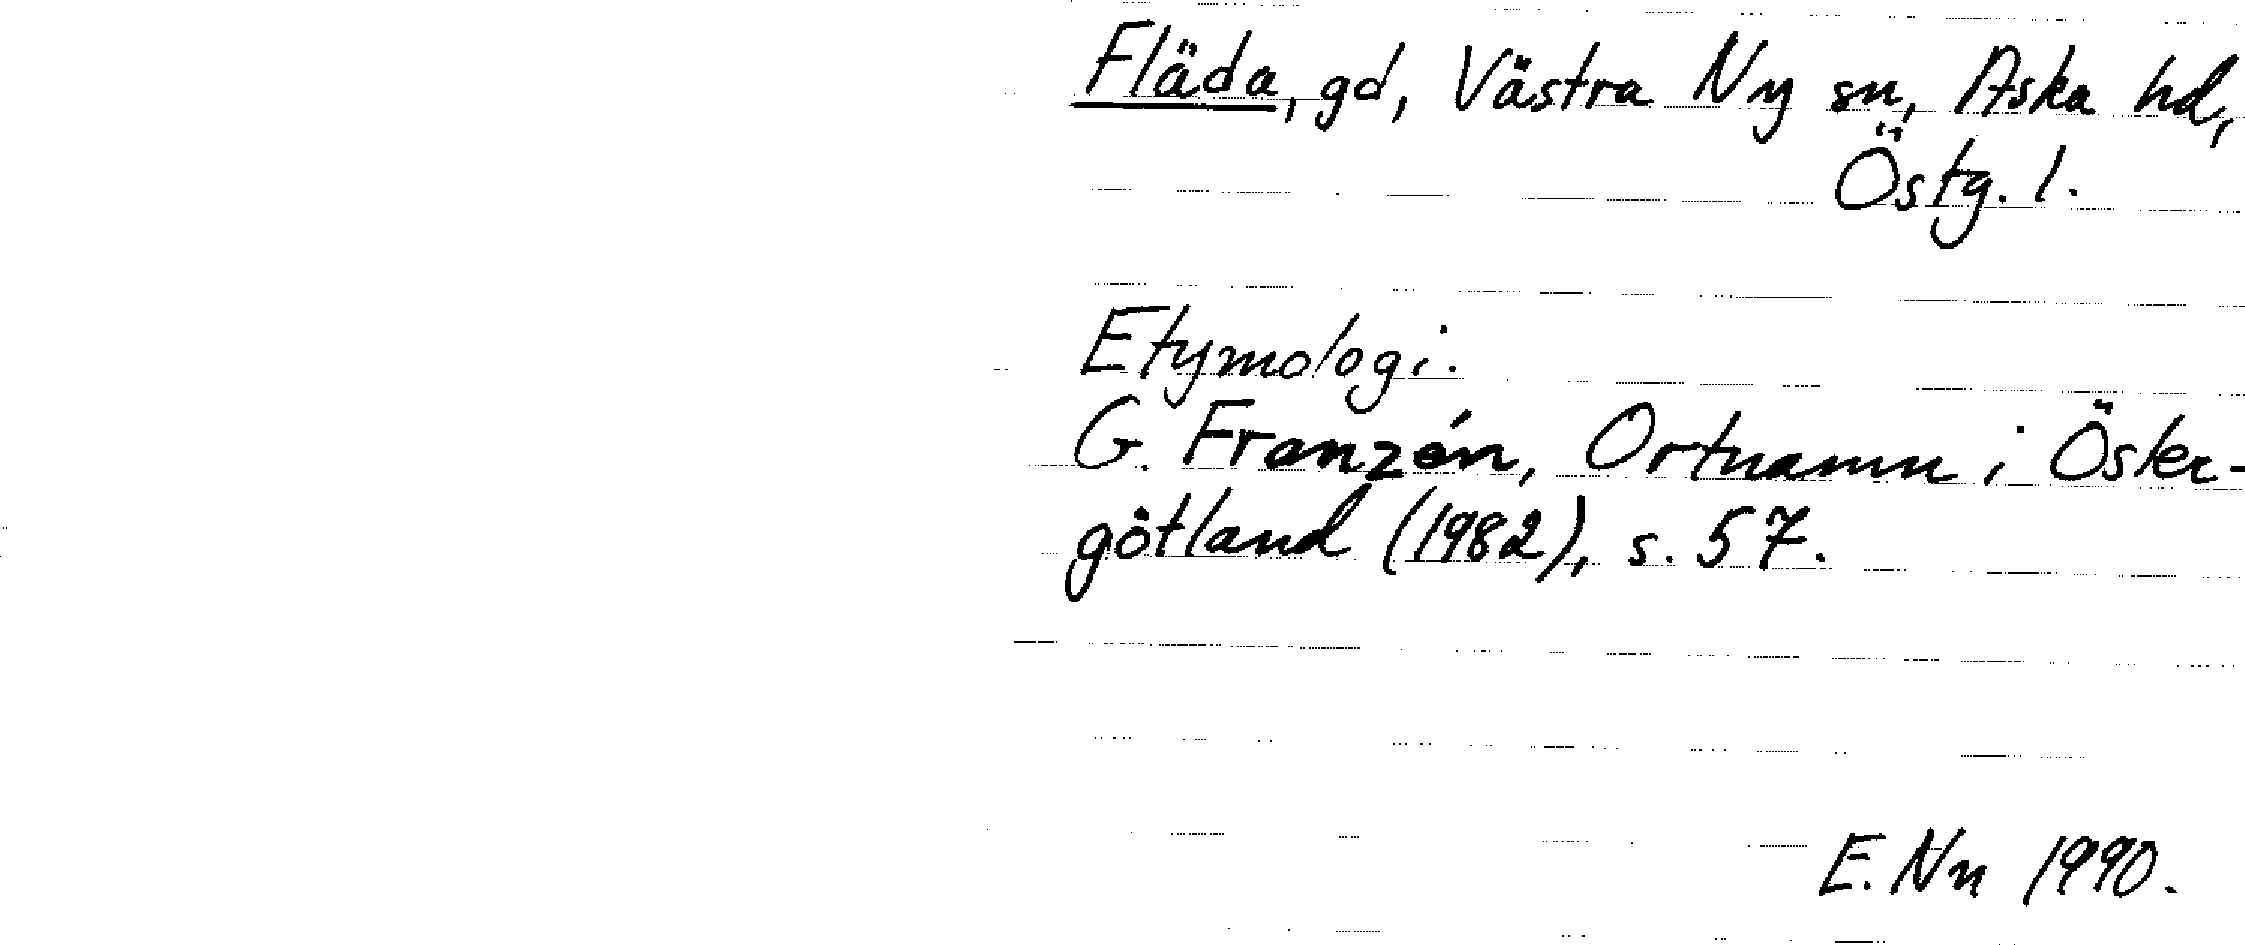 Fläda, gd, Västra Ny sn, Aska hd,
Östg. l.
Etymologi.
G. Franzén, Ortnamn i Öster-
götland (1982), s. 57.
E. Nn 1990.